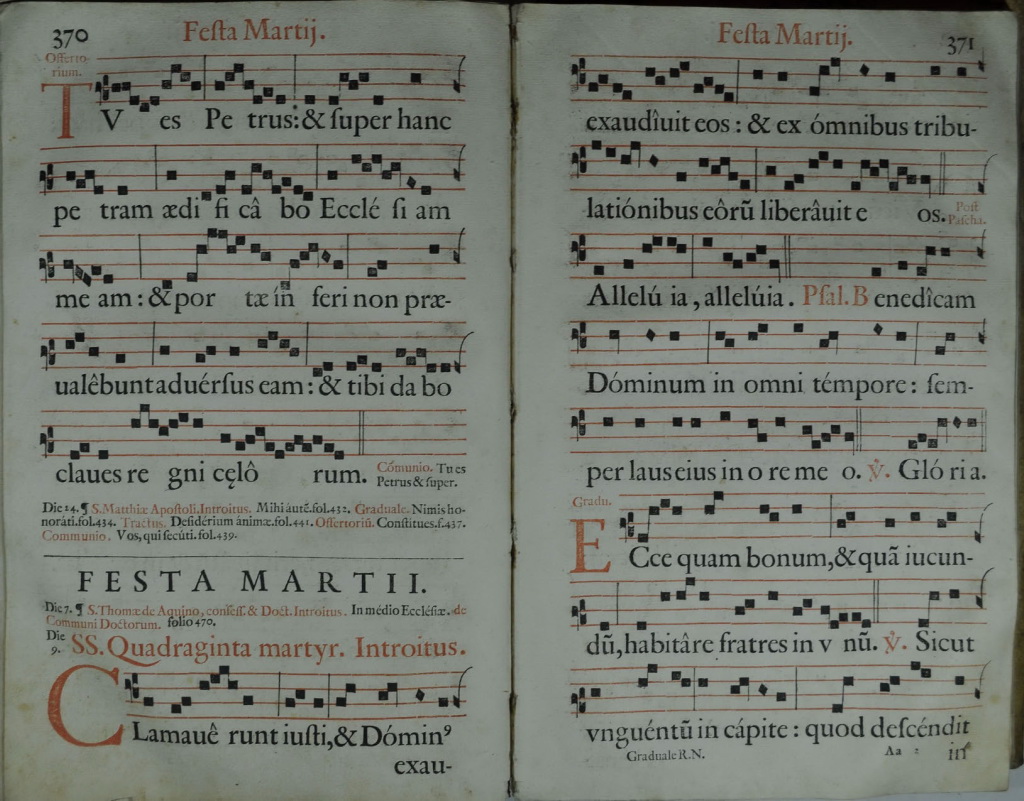 370
Festa Martij.
Offertorium.
TV es Pe trus: & super hanc
pe tram ædi fi câ bo Ecclé si am
me am: & por tæ ín feri non præ-
ualêbunt aduérsus eam: & tibi da bo
claues re gni cęlô rum. Cómunio. Tu es
Petrus & super.
Die 24. ¶ S. Matthiæ Apostoli. Introitus. Mihi áutē. fol. 432. Graduale. Nimis ho-
noráti. fol. 434. Tractus. Desidérium ánimæ. fol. 441. Offertoriū. Constitues. f. 437.
Communio. Vos, qui secúti. fol. 439.
FESTA MARTII.
Die 7. ¶ S. Thomæ de Aquino, confess. & Doct. Introitus. In médio Ecclésiæ. de
Communi Doctorum. folio 470.
Die 9. SS. Quadraginta martyr. Introitus.
CLamauê runt iusti, & Dóminꝰ
exau-
Festa Martij.
371
exaudîuit eos: & ex ómnibus tribu-
latiónibus eôrū liberâuit e os. Post Pascha.
Allelú ia, allelúia. Psal. Benedîcam
Dóminum in omni témpore: sem-
per laus eius in o re me o. ℣. Gló ri a.
Gradu.
ECce quam bonum, & quā iucun-
dū, habitâre fratres in v nū. ℣. Sicut
vnguéntū in cápite: quod descéndit
Graduale R.N. Aa 2 in